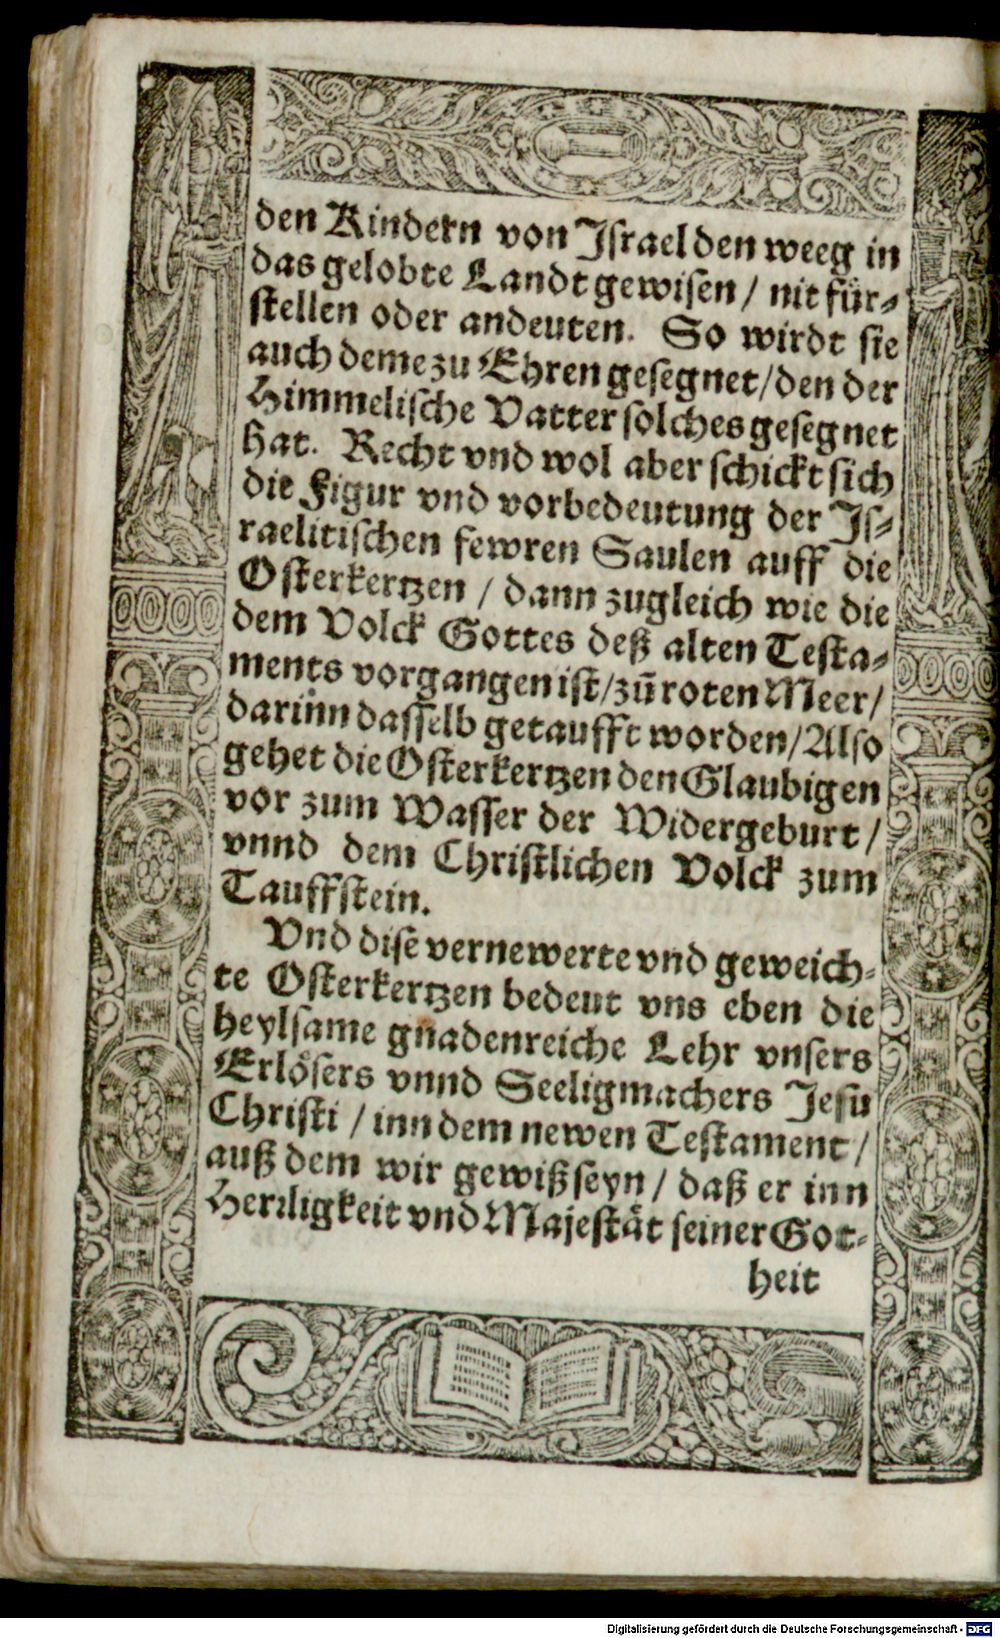 den Kindern von Israel den weeg in
das gelobte Landt gewisen / nit für⸗
stellen oder andeuten. So wirdt sie
auch deme zu Ehren gesegnet / den der
Himmelische Vatter solches gesegnet
hat. Recht vnd wol aber schickt sich
die Figur vnd vorbedeutung der Is⸗
raelitischen fewren Saulen auff die
Osterkertzen / dann zugleich wie die
dem Volck Gottes deß alten Testa⸗
ments vorgangen ist / zũ roten Meer /
darinn dasselb getaufft worden / Also
gehet die Osterkertzen den Glaubigen
vor zum Wasser der Widergeburt /
vnnd dem Christlichen Volck zum
Tauffstein.
Vnd dise vernewerte vnd geweich⸗
te Osterkertzen bedeut vns eben die
heylsame gnadenreiche Lehr vnsers
Erlösers vnnd Seeligmachers Jesu
Christi / inn dem newen Testament /
auß dem wir gewiß seyn / daß er inn
Herrligkeit vnd Majestät seiner Got⸗
heit
Digitalisierung gefördert durch die Deutsche Forschungsgemeinschaft - DFG